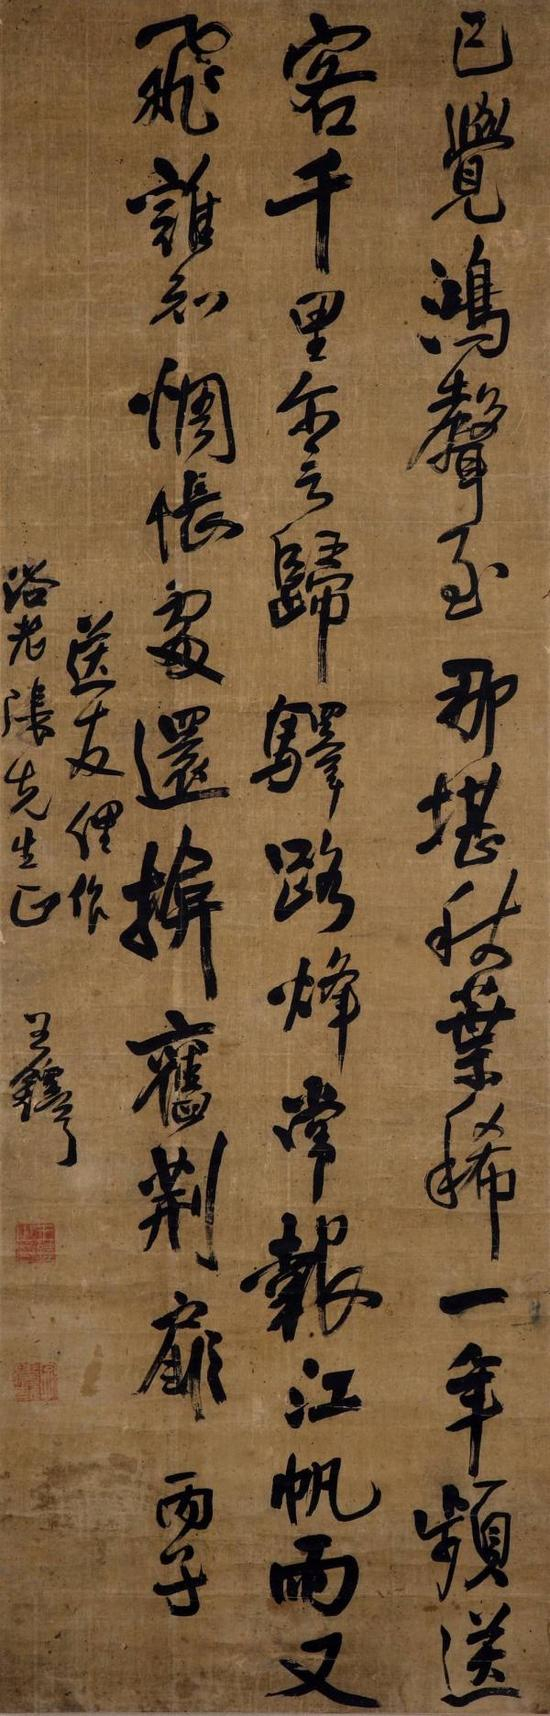 已覺鴻聲至那堪秋葉稀一年頻送
客千里尔言歸驛路烽常報江帆雨又
飛誰知惆悵處還掩舊荆扉丙子
送友俚作
老張先生正
王鐸